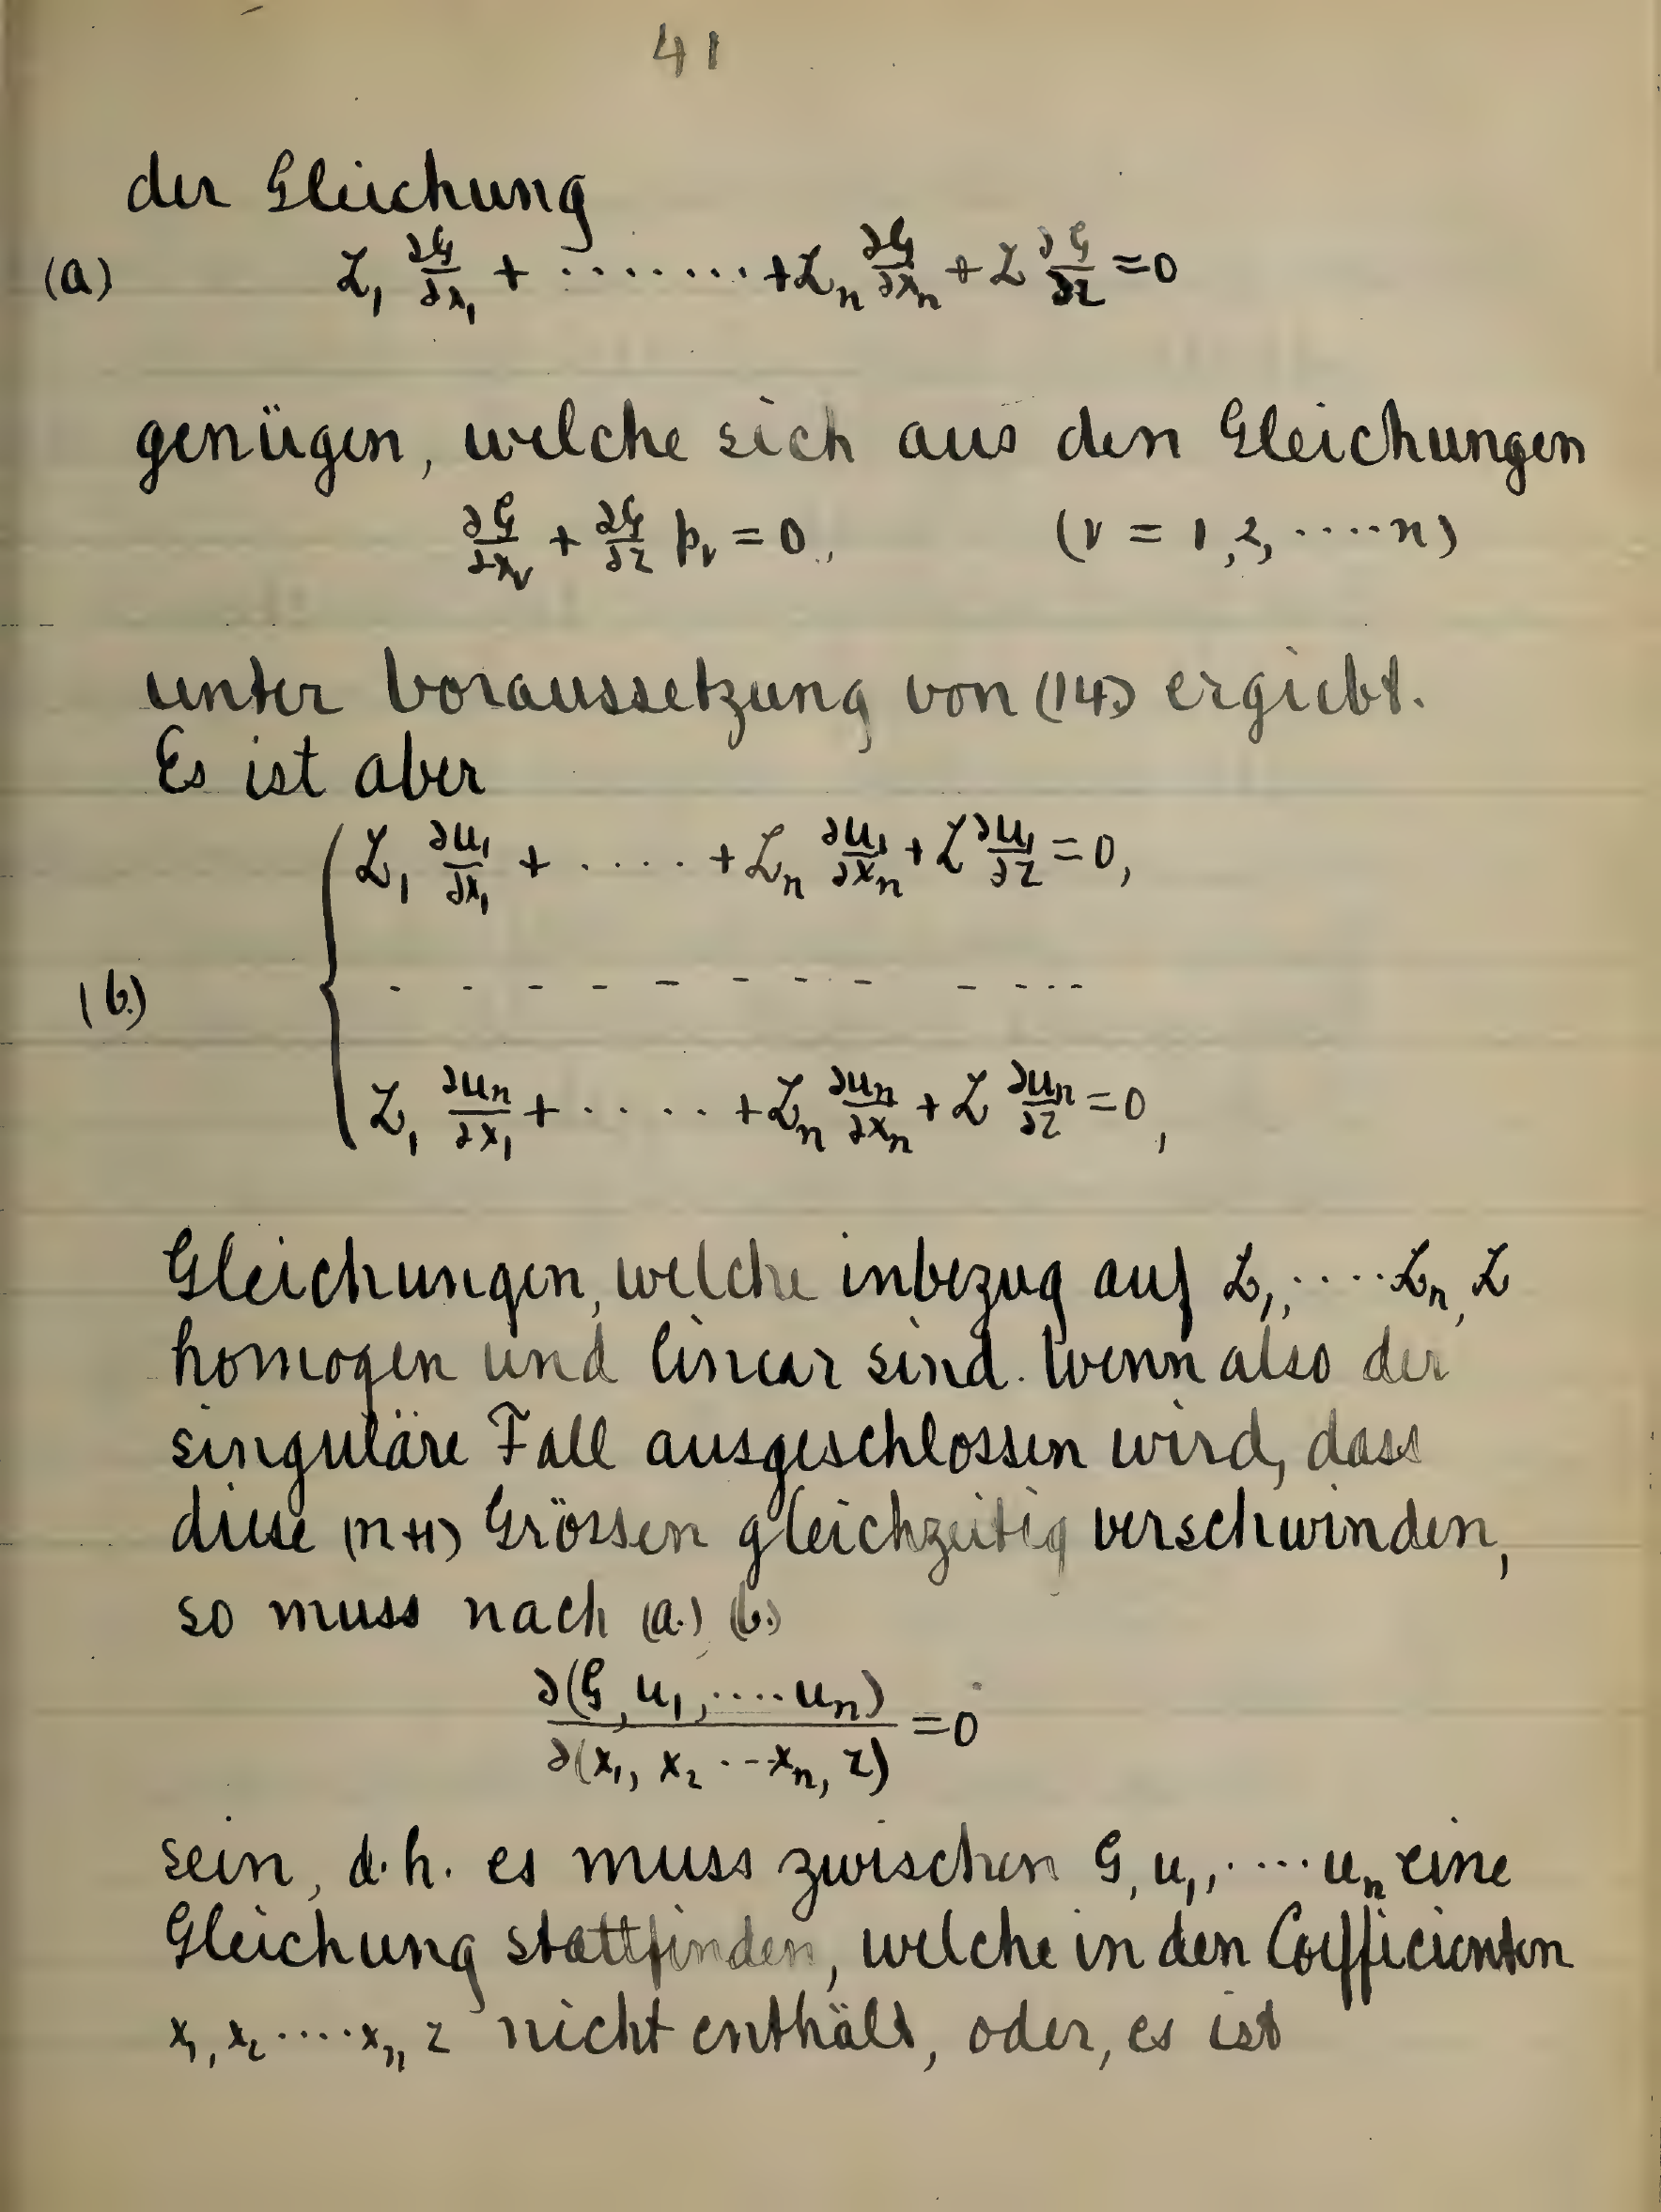 41
der Gleichung
(a) L₁ ∂G/∂x₁ + ........ + Lₙ ∂G/∂xₙ + L ∂G/∂z = 0
genügen, welche sich aus den Gleichungen
∂G/∂xᵥ + ∂G/∂z pᵥ = 0, (ν = 1, 2, ....n)
unter Voraussetzung von (14) ergiebt.
Es ist aber
L₁ ∂u₁/∂x₁ + ..... + Lₙ ∂u₁/∂xₙ + L ∂u₁/∂z = 0,
(b.) - - - - - - - - - - ...
L₁ ∂uₙ/∂x₁ + ..... + Lₙ ∂uₙ/∂xₙ + L ∂uₙ/∂z = 0,
Gleichungen, welche inbezug auf L₁, ....Lₙ, L
homogen und linear sind. Wenn also der
singuläre Fall ausgeschlossen wird, dass
diese (n+1) Grössen gleichzeitig verschwinden,
so muss nach (a.), (b.)
∂(G, u₁, ....uₙ)/∂(x₁, x₂ ...xₙ, z) = 0
sein, d.h. es muss zwischen G, u₁, ....uₙ eine
Gleichung stattfinden, welche in den Coefficienten
x₁, x₂ .....xₙ, z nicht enthält, oder, es ist